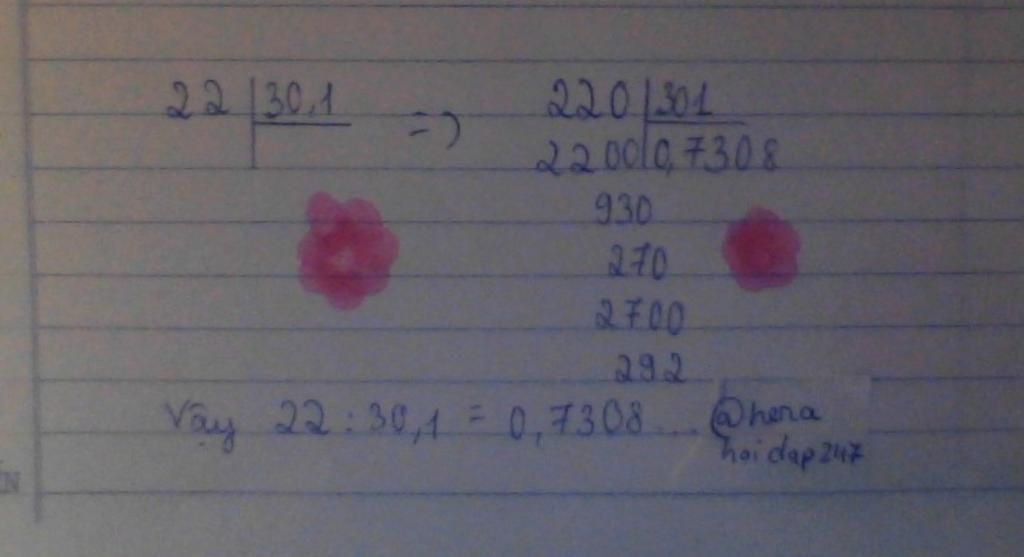 22 30,1 => 220 301
2200 0,7308
930
270
2700
292
Vậy 22 : 30,1 = 0,7308... @hera
hoidap247